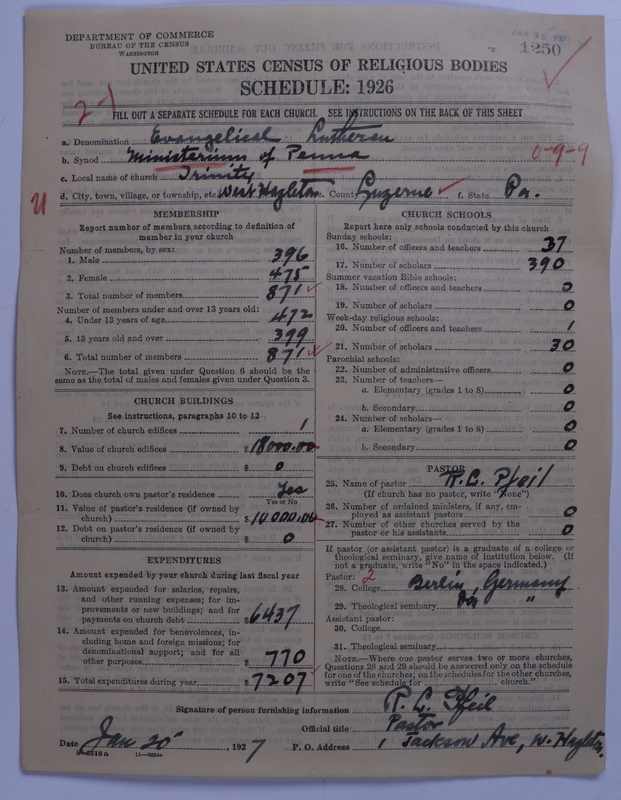 DEPARTMENT OF COMMERCE
BUREAU OF THE CENSUS
WASHINGTON
1250
UNITED STATES CENSUS OF RELIGIOUS BODIES
SCHEDULE: 1926
2-1
FILL OUT A SEPARATE SCHEDULE FOR EACH CHURCH. SEE INSTRUCTIONS ON THE BACK OF THIS SHEET
a. Denomination Evangelical Lutheran
b. Synod Ministerium of Penna
0-9-9
c. Local name of church Trinity
d. City, town, village, or township, etc. West Hazleton e. County Luzerne f. State Pa.
U
MEMBERSHIP
Report number of members according to definition of member in your church
Number of members, by sex:
1. Male 396
2. Female 475
3. Total number of members 871
Number of members under and over 13 years old:
4. Under 13 years of age 472
5. 13 years old and over 399
6. Total number of members 871
NOTE.—The total given under Question 6 should be the same as the total of males and females given under Question 3.
CHURCH BUILDINGS
See instructions, paragraphs 10 to 12
7. Number of church edifices 1
8. Value of church edifices $18000.00
9. Debt on church edifices $ 0
10. Does church own pastor's residence Yes
Yes or No
11. Value of pastor's residence (if owned by church) $10,000.00
12. Debt on pastor's residence (if owned by church) $ 0
EXPENDITURES
Amount expended by your church during last fiscal year
13. Amount expended for salaries, repairs, and other running expenses; for improvements or new buildings; and for payments on church debt $6437
14. Amount expended for benevolences, including home and foreign missions; for denominational support; and for all other purposes $ 770
15. Total expenditures during year $7207
CHURCH SCHOOLS
Report here only schools conducted by this church
Sunday schools:
16. Number of officers and teachers 37
17. Number of scholars 390
Summer vacation Bible schools:
18. Number of officers and teachers 0
19. Number of scholars 0
Week-day religious schools:
20. Number of officers and teachers 1
21. Number of scholars 30
Parochial schools:
22. Number of administrative officers 0
23. Number of teachers—
a. Elementary (grades 1 to 8) 0
b. Secondary 0
24. Number of scholars—
a. Elementary (grades 1 to 8) 0
b. Secondary 0
PASTOR
25. Name of pastor R. C. Pfeil
(If church has no pastor, write "none")
26. Number of ordained ministers, if any, employed as assistant pastors 0
27. Number of other churches served by the pastor or his assistants 0
If pastor (or assistant pastor) is a graduate of a college or theological seminary, give name of institution below. (If not a graduate, write "No" in the space indicated.)
Pastor: 2
28. College Berlin, Germany
29. Theological seminary Do "
Assistant pastor:
30. College
31. Theological seminary
NOTE.—Where one pastor serves two or more churches, Questions 28 and 29 should be answered only on the schedule for one of the churches; on the schedules for the other churches, write "See schedule for church."
Signature of person furnishing information R. C. Pfeil
Official title Pastor
Date Jan 20", 1927 P. O. Address Jackson Ave, W. Hazleton.